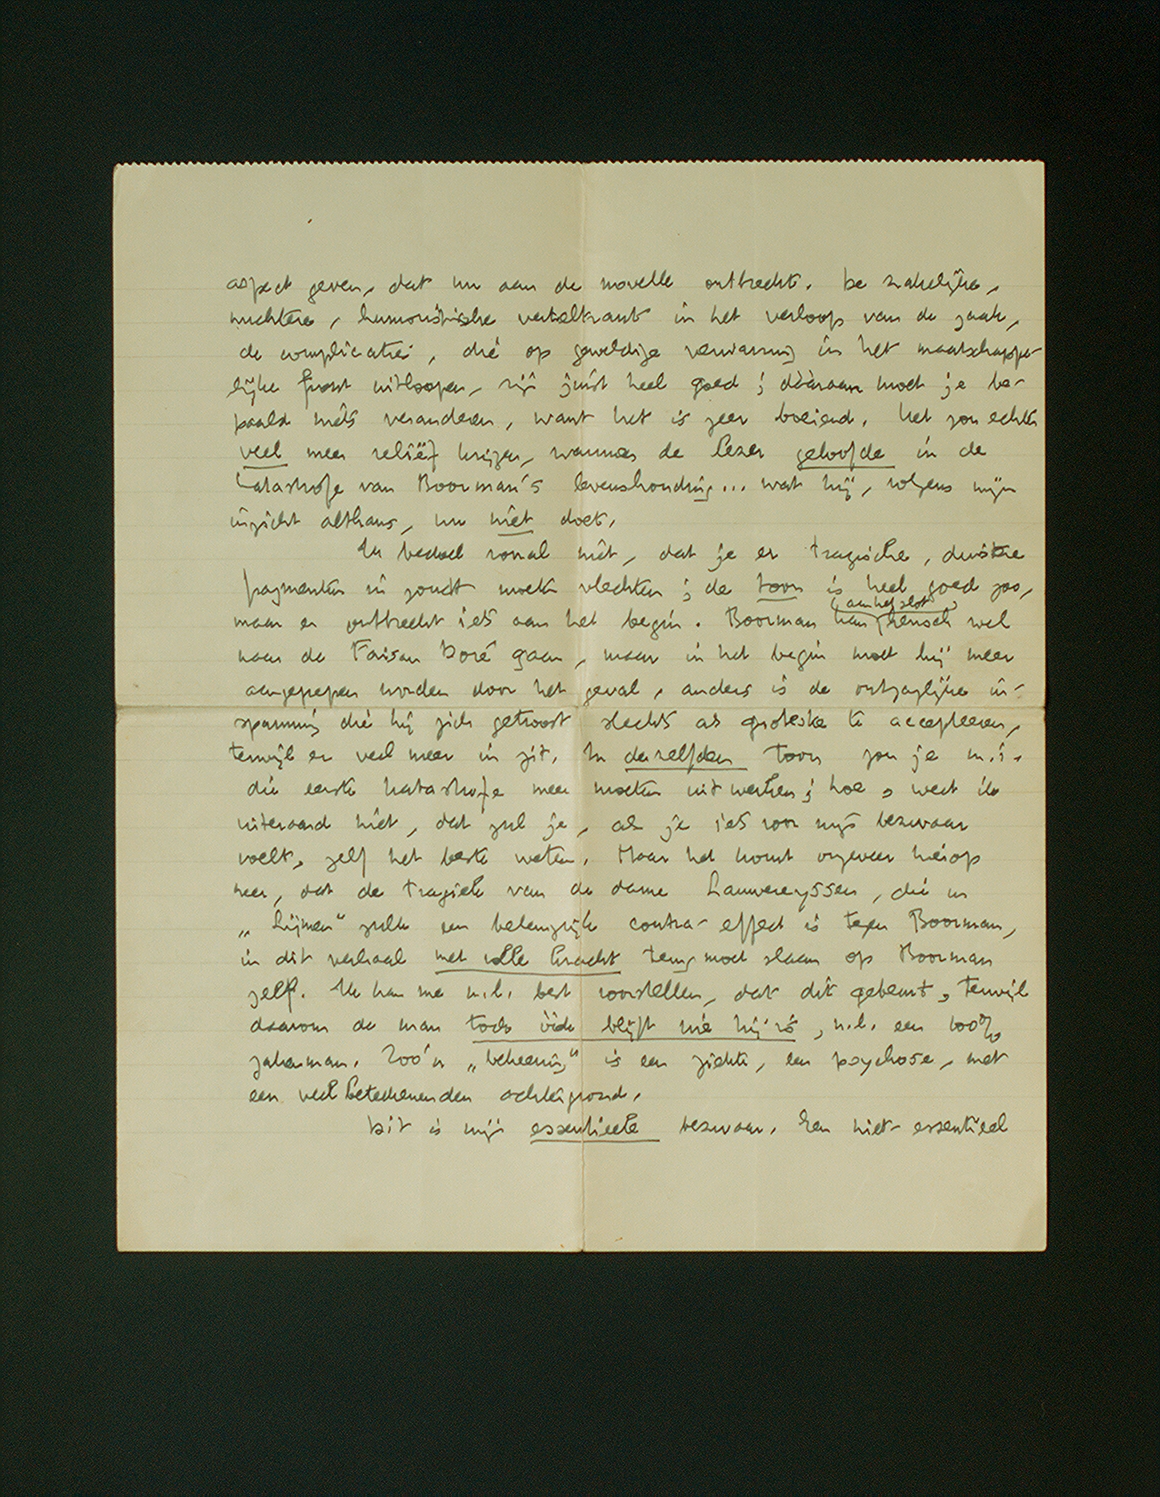 aspect geven, dat nu aan de novelle ontbreekt. De zakelijke,
nuchtere, humoristische verteltrant in het verloop van de zaak,
de complicatie, die op geweldige verwarring in het maatschappe-
lijke front uitloopen, zijn juist heel goed; dààraan moet je be-
paald niets veranderen, want het is zeer boeiend. Het zou echter
veel meer reliëf krijgen, wanneer de lezer geloofde in de
catastrofe van Boorman's levenshouding... wat hij, volgens mijn
inzicht althans, nu niet doet.
Ik bedoel vooral niet, dat je er tragische, duistere
fragmenten in zoudt moeten vlechten; de toon is heel goed zoo,
maar er ontbreekt iets aan het begin. Boorman kan (aan het slot) heusch wel
naar de Faisan Doré gaan, maar in het begin moet hij meer
aangegrepen worden door het geval, anders is de ontzaglijke in-
spanning die hij zich getroost slechts als groteske te accepteeren,
terwijl er veel meer in zit. In denzelfden toon zou je m.i.
die eerste katastrofe meer moeten uitwerken; hoe, weet ik
uiteraard niet, dat zul je, als je iets voor mijn bezwaar
voelt, zelf het beste weten. Maar het komt ongeveer hierop
neer, dat de tragiek van de dame Lauwereyssen, die in
„Lijmen" zulk een belangrijk contra-effect is tegen Boorman,
in dit verhaal met volle kracht terug moet slaan op Boorman
zelf. Ik kan me n.l. best voorstellen, dat dit gebeurt, terwijl
daarom de man toch óók blijft wie hij is, n.l. een 100%
zakenman. Zoo'n „bekeering" is een ziekte, een psychose, met
een veelbeteekenenden achtergrond.
Dit is mijn essentieele bezwaar. Een niet-essentieel